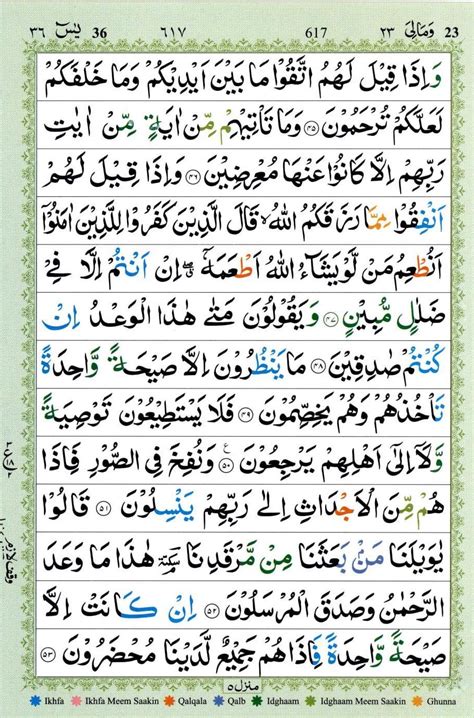 23 وَمَالِیَ ٢٣ 617 ٦١٧ 36 یٰسٓ ٣٦
وَاِذَا قِيْلَ لَهُمُ اتَّقُوْا مَا بَيْنَ اَيْدِيْكُمْ وَمَا خَلْفَكُمْ
لَعَلَّكُمْ تُرْحَمُوْنَ ۝٤٥ وَمَا تَاْتِيْهِمْ مِّنْ اٰيَةٍ مِّنْ اٰيٰتِ
رَبِّهِمْ اِلَّا كَانُوْا عَنْهَا مُعْرِضِيْنَ ۝٤٦ وَاِذَا قِيْلَ لَهُمْ
اَنْفِقُوْا مِمَّا رَزَقَكُمُ اللّٰهُ ۙ قَالَ الَّذِيْنَ كَفَرُوْا لِلَّذِيْنَ اٰمَنُوْٓا
اَنُطْعِمُ مَنْ لَّوْ يَشَآءُ اللّٰهُ اَطْعَمَهٗٓ ۖ اِنْ اَنْتُمْ اِلَّا فِيْ
ضَلٰلٍ مُّبِيْنٍ ۝٤٧ وَيَقُوْلُوْنَ مَتٰى هٰذَا الْوَعْدُ اِنْ
كُنْتُمْ صٰدِقِيْنَ ۝٤٨ مَا يَنْظُرُوْنَ اِلَّا صَيْحَةً وَّاحِدَةً
تَاْخُذُهُمْ وَهُمْ يَخِصِّمُوْنَ ۝٤٩ فَلَا يَسْتَطِيْعُوْنَ تَوْصِيَةً
وَّلَآ اِلٰٓى اَهْلِهِمْ يَرْجِعُوْنَ ۝٥٠ وَنُفِخَ فِي الصُّوْرِ فَاِذَا
هُمْ مِّنَ الْاَجْدَاثِ اِلٰى رَبِّهِمْ يَنْسِلُوْنَ ۝٥١ قَالُوْا
يٰوَيْلَنَا مَنْۢ بَعَثَنَا مِنْ مَّرْقَدِنَا ۘ سكتة هٰذَا مَا وَعَدَ
الرَّحْمٰنُ وَصَدَقَ الْمُرْسَلُوْنَ ۝٥٢ اِنْ كَانَتْ اِلَّا
صَيْحَةً وَّاحِدَةً فَاِذَا هُمْ جَمِيْعٌ لَّدَيْنَا مُحْضَرُوْنَ ۝٥٣
وقف لازم
منزل ٥
Ikhfa Ikhfa Meem Saakin Qalqala Qalb Idghaam Idghaam Meem Saakin Ghunna